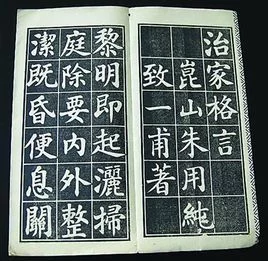 治家格言
崑山朱用純
致一甫著
黎明即起灑掃
庭除要內外整
潔既昏便息關